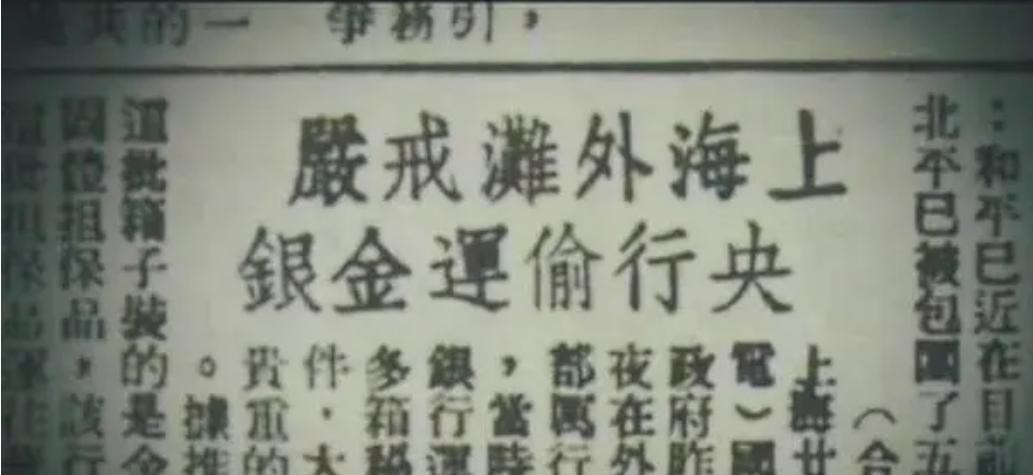 上海外灘戒嚴
央行偷運金銀
：和平已近在目
北平已被包圍了五
（合
上海廿
電）國
政府昨
夜在外
部厲行
，當時
銀行運
多箱
件，大
貴重的
。據推
這批箱子裝的是金
團體担保品，該行